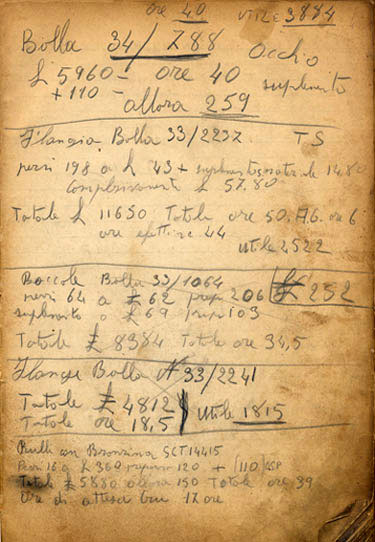 ore 40 UTILE 3884
Bolla 34/788 Occhio
£ 5960 - ore 40 suplemento
+110 - allora 259
Flangia Bolla 33/2237 TS
pezzi 198 a £ 43 + suplemento 14,80
complessivamente £ 57.80
Totale £ 11650 Totale ore 50, A6. ore 6
ore effettive 44
utile 2522
Boccole Bolla 33/1064 £ 252
pezzi 64 a £ 62 prep 206
suplemento a £ 69 prep 103
Totale £ 8384 Totale ore 34,5
Flange Bolla N° 33/2241
Totale £ 4812 utile 1815
Totale ore 18,5
Rulli con Bronzina SCT 14415
Pezzi 16 a £ 360 prep 120 + (110)
Totale £ 5880 allora 150 Totale ore 39
Ore di attesa ben 17 ore